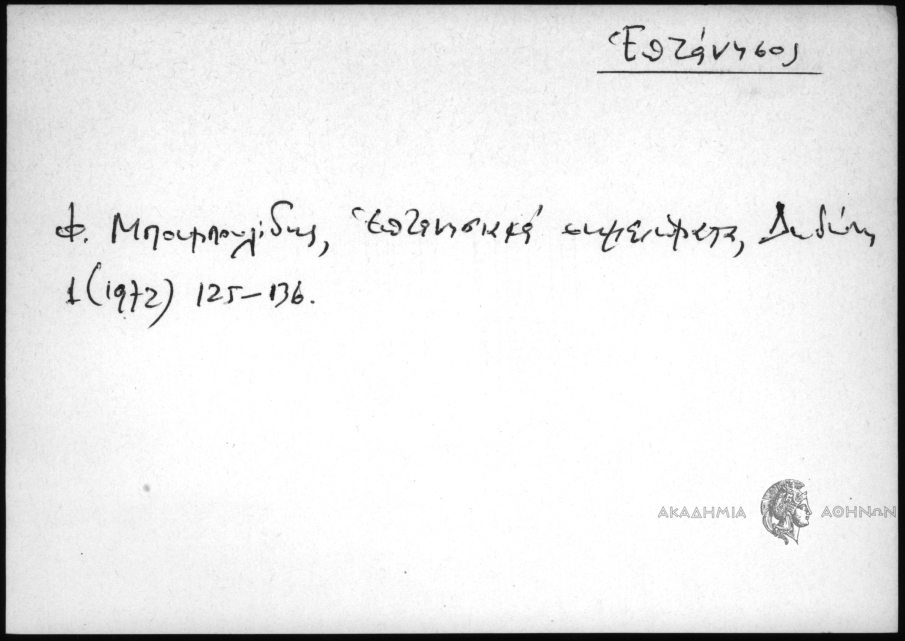 Ἑπτάνησος
Φ. Μπουμπουλίδης, Ἑπτανησιακά σημειώματα, Δωδώνη
1 (1972) 125–136.
ΑΚΑΔΗΜΙΑ ΑΘΗΝΩΝ